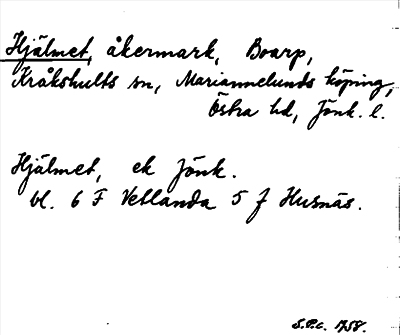 Hjälmet, åkermark, Boarp,
Kråkshults sn, Mariannelunds köping,
Östra hd, Jönk. l.
Hjälmet, ek Jönk.
bl. 6 F Vetlanda 5 f Husnäs.
S.P.c. 1758.